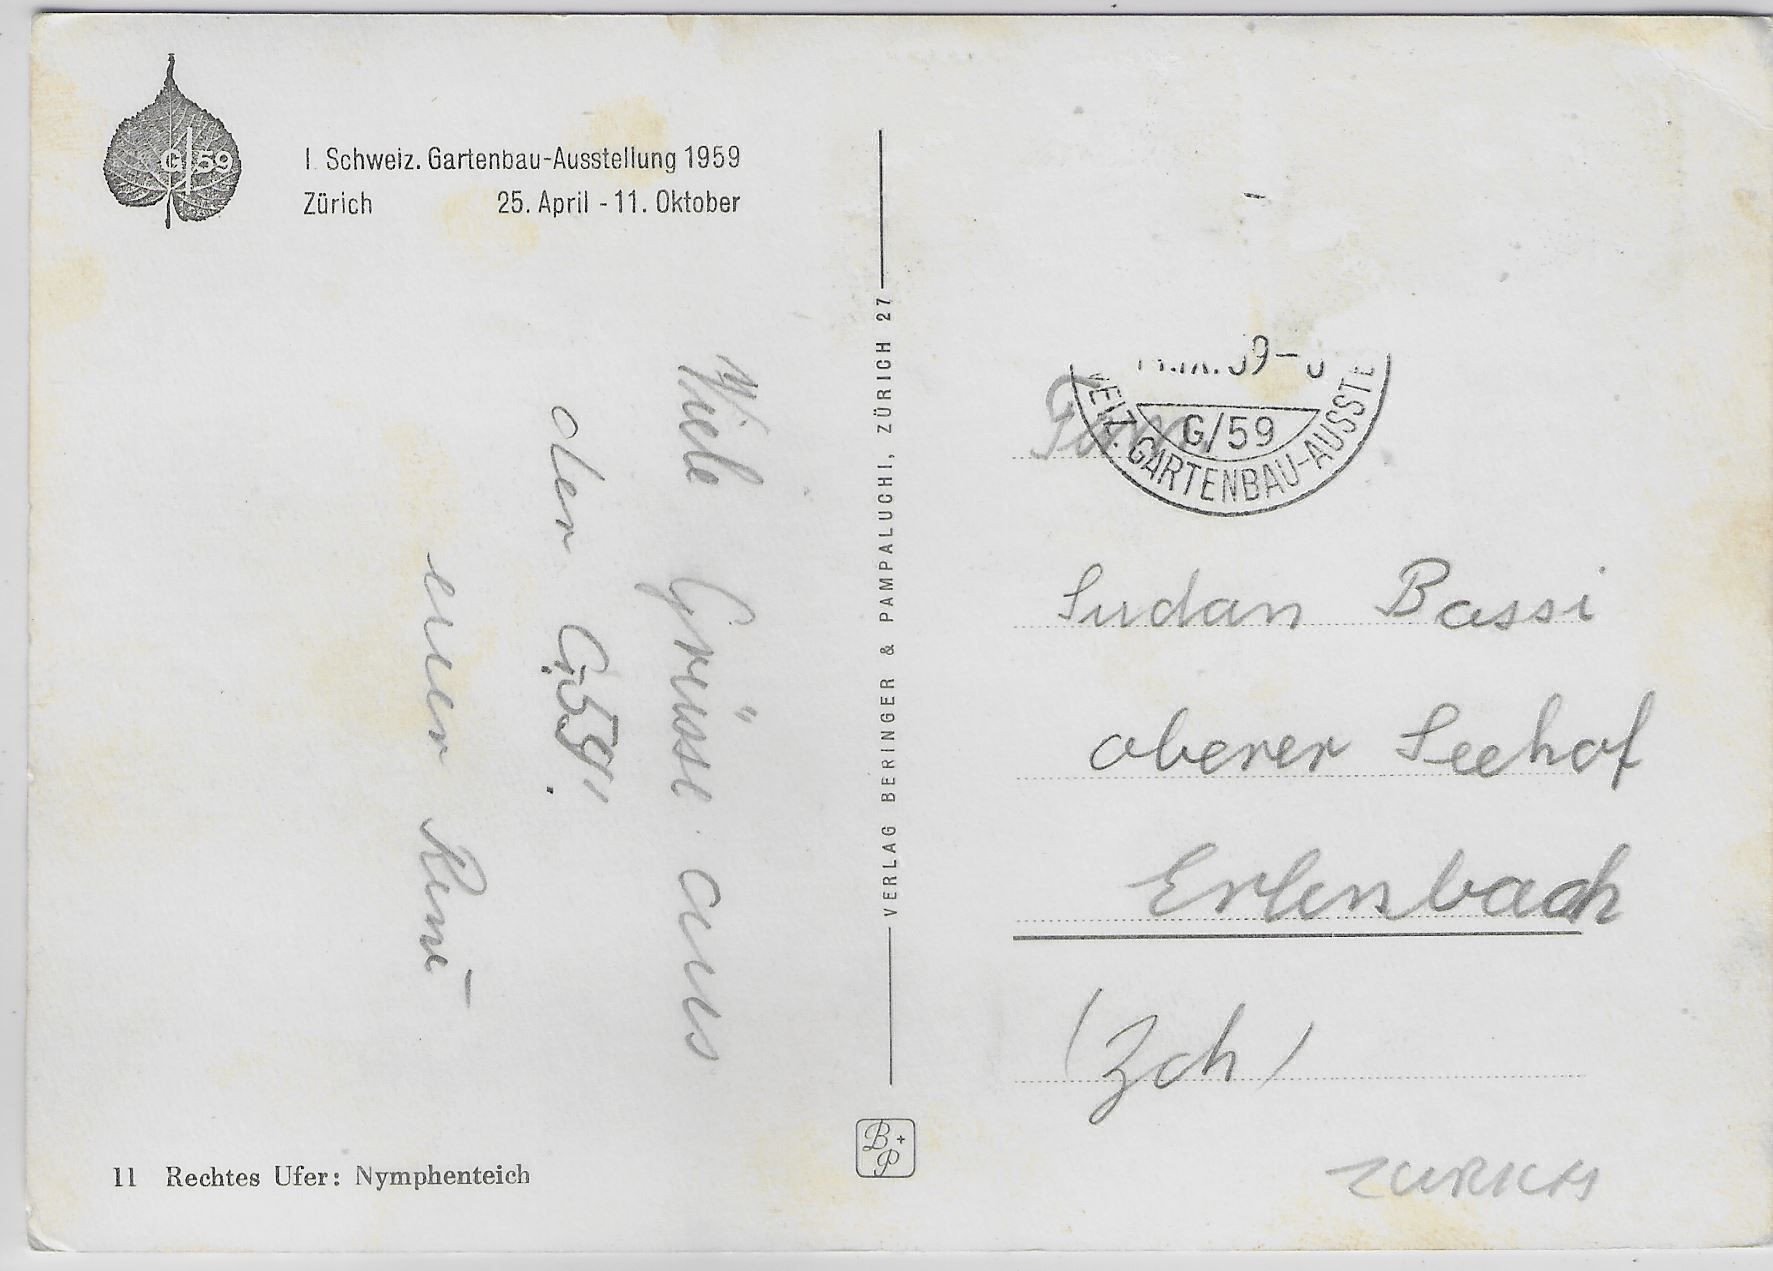 G/59
I. Schweiz. Gartenbau-Ausstellung 1959
Zürich 25. April - 11. Oktober
Viele Grüsse aus
der G59!
euer
VERLAG BERINGER & PAMPALUCHI, ZÜRICH 27
59-
G/59
EIZ. GARTENBAU-AUSSTE
Fam.
Sudan Bassi
oberer Seehof
Erlenbach
(Zch)
ZURICH
B+P
11 Rechtes Ufer: Nymphenteich